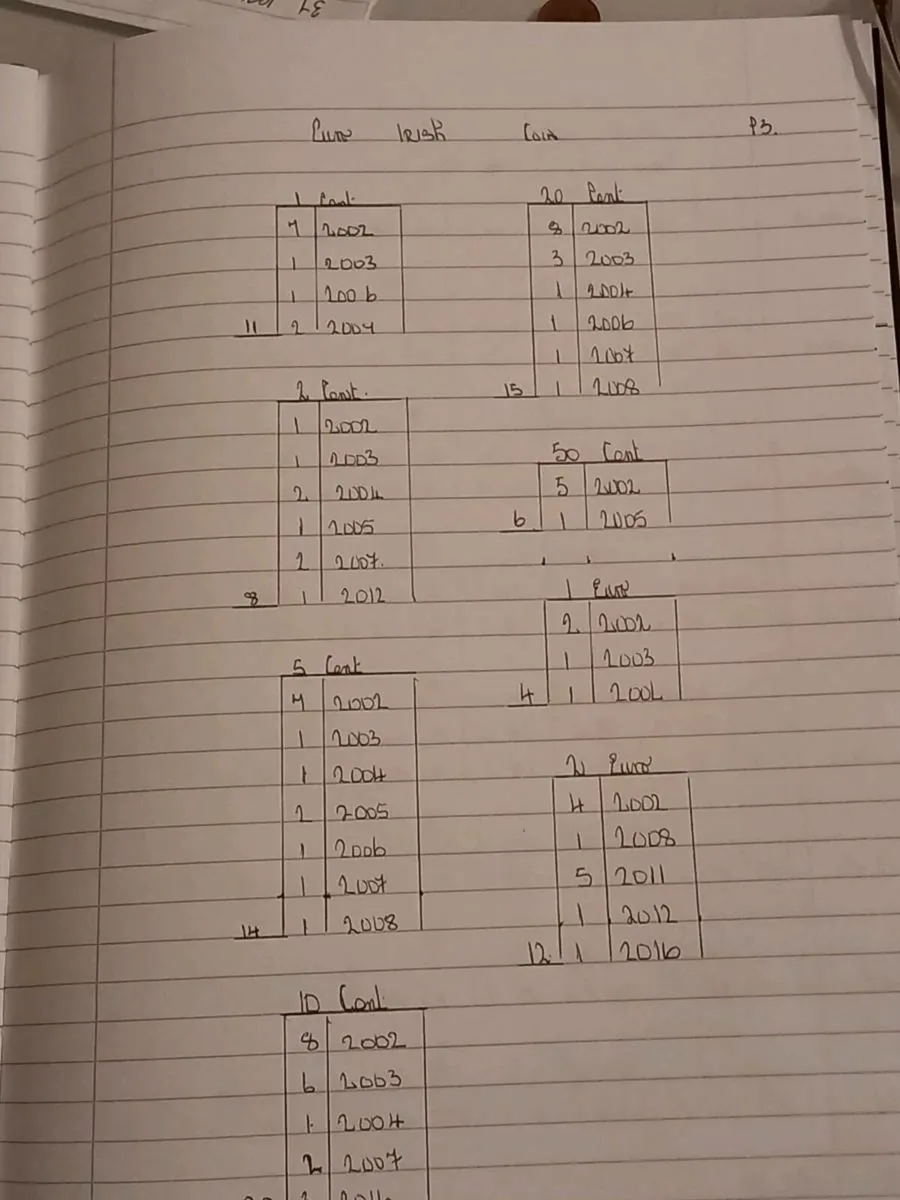 Euro IRISH COIN P3.
1 Cent
7 2002
1 2003
1 2006
11 2 2007
2 Cent.
1 2002
1 2003
2 2004
1 2005
2 2007.
8 1 2012
5 Cent
7 2002
1 2003
1 2004
2 2005
1 2006
1 2007
14 1 2008
10 Cent.
8 2002
6 2003
1 2004
2 2007
20 Cent
8 2002
3 2003
1 2004
1 2006
1 2007
15 1 2008
50 Cent
5 2002
6 1 2005
1 Euro
2 2002
1 2003
4 1
2 Euro
4 2002
1 2008
5 2011
1 2012
12. 1 2016